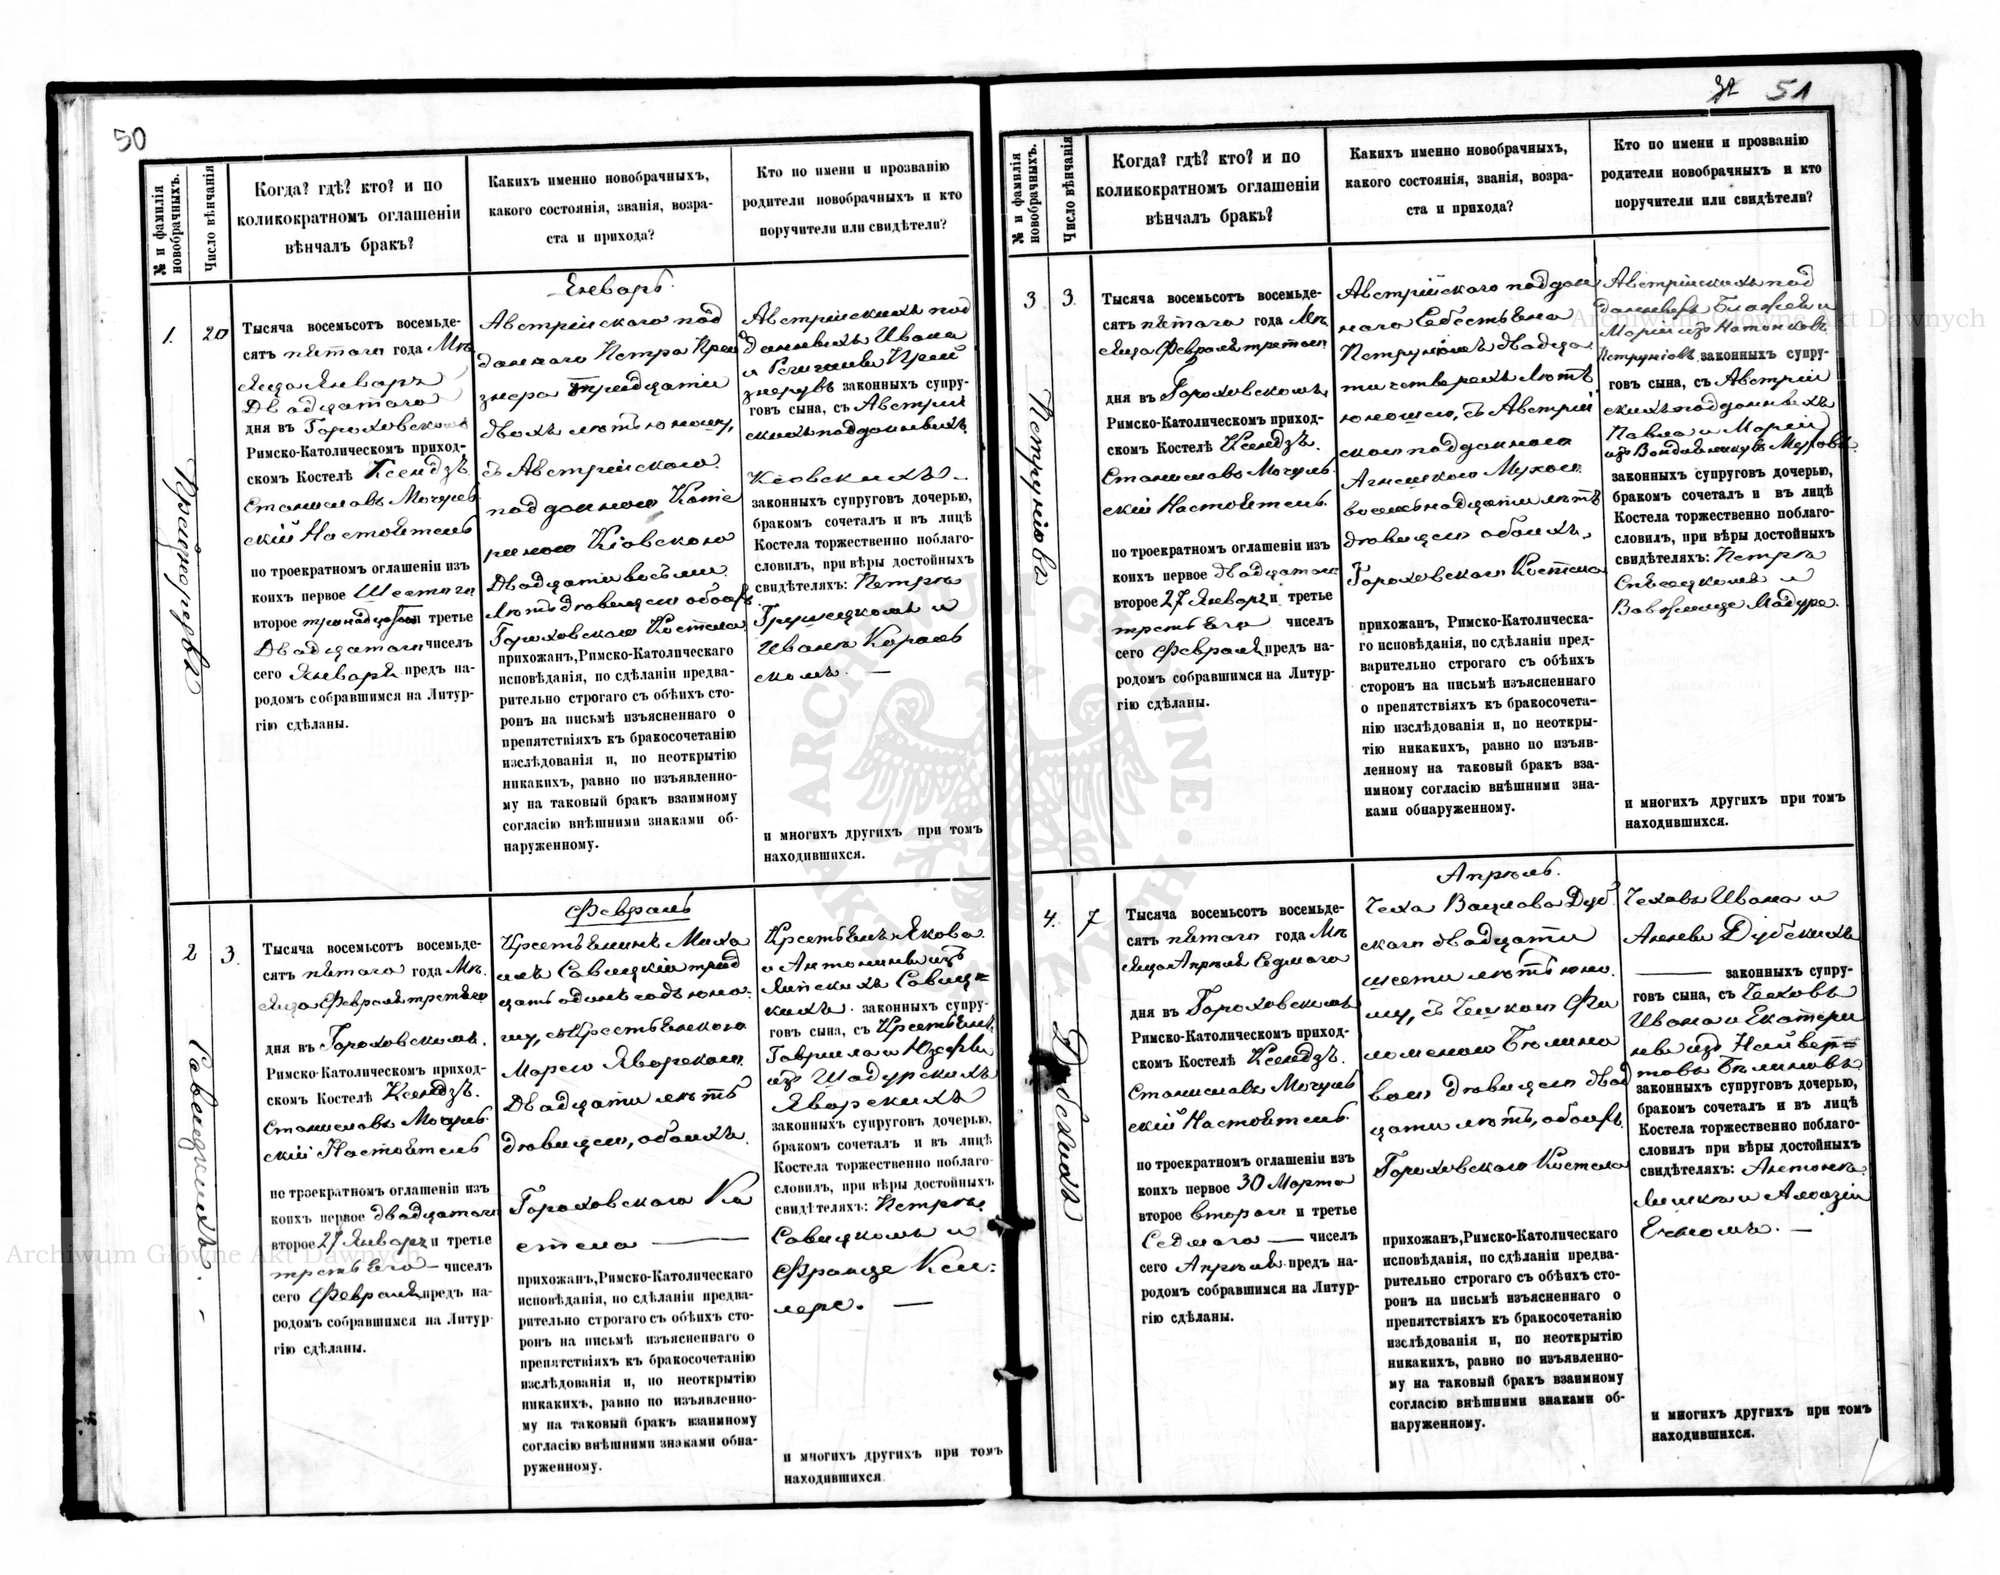 50
№ и фамилія новобрачныхъ.
Число вѣнчанія
Когда? гдѣ? кто? и по
коликократномъ оглашеніи
вѣнчалъ бракъ?
Какихъ именно новобрачныхъ,
какого состоянія, званія, возра-
ста и прихода?
Кто по имени и прозванію
родители новобрачныхъ и кто
поручители или свидѣтели?
1.
20
Тысяча восемьсотъ восемьде-
сятъ пятаго года Мѣ
сяца Января
Двадцатаго
дня въ Гороховскомъ
Римско-Католическомъ приход-
скомъ Костелѣ Ксендзъ
Станиславъ Мочуль
скій Настоятель
по троекратномъ оглашеніи изъ
коихъ первое Шестаго
второе тринадцатаго третье
Двадцатаго чиселъ
сего Января предъ на-
родомъ собравшимся на Литур-
гію сдѣланы.
Январь.
Австрійскаго под
даннаго Петра
тридцати
двохъ лѣтъ юношу,
съ Австрійскаго
подданною Кате
риною Кіовскою
Двадцати восьми
лѣтъ дѣвицею обоихъ
Гороховскаго Костела
прихожан, Римско-Католическаго
исповѣданія, по сдѣланіи предва-
рительно строгаго съ обѣихъ сто-
ронъ на письмѣ изъясненнаго о
препятствіяхъ къ бракосочетанію
изслѣдованія и, по неоткрытію
никакихъ, равно по изъявленно-
му на таковый бракъ взаимному
согласію внѣшними знаками об-
наруженному.
Австрійскихъ под
данныхъ Ивана
и Регины
законныхъ супру-
говъ сына, съ Австрій
скихъ подданныхъ
Кіовскихъ
законныхъ супруговъ дочерью,
бракомъ сочеталъ и въ лицѣ
Костела торжественно поблаго-
словилъ, при вѣры достойныхъ
свидѣтеляхъ: Петрѣ
и
Иванѣ Король
скомъ. —
и многихъ другихъ при томъ
находившихся.
2
3.
Савицкихъ. -
Тысяча восемьсотъ восемьде-
сятъ пятаго года Мѣ-
сяца Февраля третьяго
дня въ Гороховскомъ
Римско-Католическомъ приход-
скомъ Костелѣ Ксендзъ
Станиславъ Мочуль
скій Настоятель
по троекратномъ оглашеніи изъ
коихъ первое двадцатаго
второе 27 Января и третье
третьяго — чиселъ
сего Февраля предъ на-
родомъ собравшимся на Литур-
гію сдѣланы.
Февраль
Крестьянинъ Миха
илъ Савицкій трид
цать одинъ годъ юно-
шу, съ Крестьянкою
Марею Яворскою
Двадцати лѣтъ
дѣвицею, обоихъ
Гороховскаго Ко
стела —
прихожан, Римско-Католическаго
исповѣданія, по сдѣланіи предва-
рительно строгаго съ обѣихъ сто-
ронъ на письмѣ изъясненнаго о
препятствіяхъ къ бракосочетанію
изслѣдованія и, по неоткрытію
никакихъ, равно по изъявленно-
му на таковый бракъ взаимному
согласію внѣшними знаками обна-
руженному.
Крестьянъ Якова
и Антонины изъ
Савиц-
кихъ. законныхъ супру-
говъ сына, съ Крестьянъ
Гавриила и Юзефы
изъ Шадурскихъ
Яворскихъ
законныхъ супруговъ дочерью,
бракомъ сочеталъ и въ лицѣ
Костела торжественно поблаго-
словилъ, при вѣры достойныхъ
свидѣтеляхъ: Петрѣ
Савицкомъ и
Францѣ Кел-
лере. —
и многихъ другихъ при томъ
находившихся
51
№ и фамилія новобрачныхъ.
Число вѣнчанія
Когда? гдѣ? кто? и по
коликократномъ оглашеніи
вѣнчалъ бракъ?
Какихъ именно новобрачныхъ,
какого состоянія, званія, возра-
ста и прихода?
Кто по имени и прозванію
родители новобрачныхъ и кто
поручители или свидѣтели?
3
3.
Петруніовъ
Тысяча восемьсотъ восемьде-
сятъ пятаго года Мѣ
сяца Февраля третьяго
дня въ Гороховскомъ
Римско-Католическомъ приход-
скомъ Костелѣ Ксендзъ
Станиславъ Мочуль
скій Настоятель
по троекратномъ оглашеніи изъ
коихъ первое двадцатаго
второе 27 Января и третье
третьяго чиселъ
сего Февраля предъ на-
родомъ собравшимся на Литур-
гію сдѣланы.
Австрійскаго поддан
наго Себестьяна
двадца
ти четверехъ лѣтъ
юношею, съ Австрій
скою подданною
восемьнадцати лѣтъ
дѣвицею обоихъ
Гороховскаго Костела
прихожан, Римско-Католическа-
го исповѣданія, по сдѣланіи пред-
варительно строгаго съ обѣихъ
сторонъ на письмѣ изъясненнаго
о препятствіяхъ къ бракосочета-
нію изслѣдованія и, по неоткры-
тію никакихъ, равно по изъяв-
ленному на таковый бракъ вза-
имному согласію внѣшними зна-
ками обнаруженному.
Австрійскихъ под
данныхъ Блажея и
Маріи изъ
Петруніовъ законныхъ супру-
говъ сына, съ Австрій
скихъ подданныхъ
Павла и Маріи
изъ
законныхъ супруговъ дочерью,
бракомъ сочеталъ и въ лицѣ
Костела торжественно поблаго-
словилъ, при вѣры достойныхъ
свидѣтеляхъ: Петрѣ
и
и многихъ другихъ при томъ
находившихся.
4.
7
Дубскихъ
Тысяча восемьсотъ восемьде-
сятъ пятаго года Мѣ
сяца Апрѣля Седмаго
дня въ Гороховскомъ
Римско-Католическомъ приход-
скомъ Костелѣ Ксендзъ
Станиславъ Мочуль
скій Настоятель
по троекратномъ оглашеніи изъ
коихъ первое 30 Марта
второе втораго и третье
Седмаго — чиселъ
сего Апрѣля предъ на-
родомъ собравшимся на Литур-
гію сдѣланы.
Апрѣль.
Чеха Вацлава Дуб
скаго двадцати
шести лѣтъ юно
шу, съ Чешкою Фи
ломеною
вою дѣвицею двад
цати лѣтъ, обоихъ
Гороховскаго Костела
прихожан, Римско-Католическаго
исповѣданія, по сдѣланіи предва-
рительно строгаго съ обѣихъ сто-
ронъ на письмѣ изъясненнаго о
препятствіяхъ къ бракосочетанію
изслѣдованія и, по неоткрытію
никакихъ, равно по изъявленно-
му на таковый бракъ взаимному
согласію внѣшними знаками об-
наруженному.
Чеховъ Ивана и
Анны Дубскихъ
— законныхъ супру-
говъ сына, съ Чеховъ
Ивана и Екатери
ны изъ
законныхъ супруговъ дочерью,
бракомъ сочеталъ и въ лицѣ
Костела торжественно поблаго-
словилъ при вѣры достойныхъ
свидѣтеляхъ: Антонѣ
и
и многихъ другихъ при томъ
находившихся.
Archiwum Główne Akt Dawnych
Archiwum Główne Akt Dawnych
ARCHIWUM GŁÓWNE AKT DAWNYCH